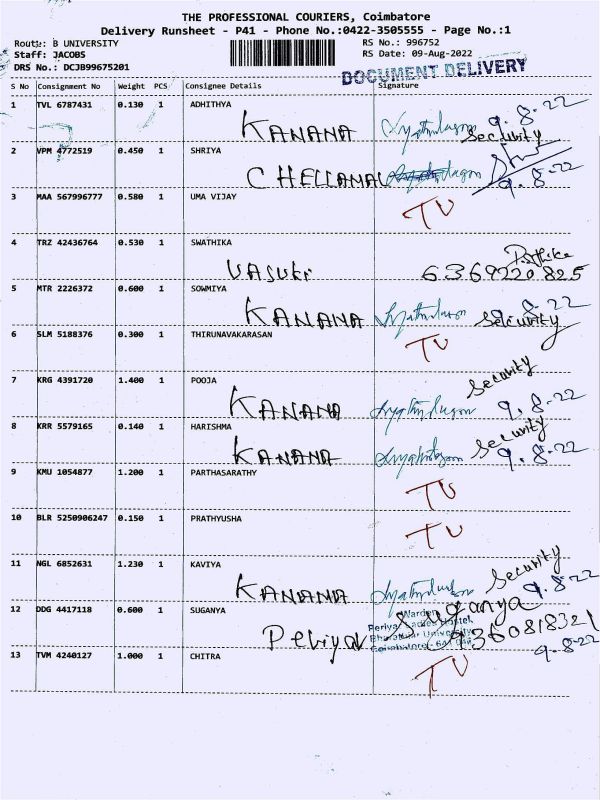 THE PROFESSIONAL COURIERS, Coimbatore
Delivery Runsheet - P41 - Phone No.:0422-3505555 - Page No.:1
Route: B UNIVERSITY
RS No.: 996752
Staff: JACOBS
RS Date: 09-Aug-2022
DRS No.: DCJB99675201
DOCUMENT DELIVERY
S No Consignment No Weight PCS Consignee Details Signature
1 TVL 6787431 0.130 1 ADHITHYA
KANANA 9.8-22
Security
2 VPM 4772519 0.450 1 SHRIYA
CHELLAMAL 9.8-22
3 MAA 567996777 0.580 1 UMA VIJAY
TU
4 TRZ 42436764 0.530 1 SWATHIKA
VASUKI 6369220825
5 MTR 2226372 0.600 1 SOWMIYA
KANANA 9.8-22
Security
6 SLM 5188376 0.300 1 THIRUNAVAKARASAN
TU
7 KRG 4391720 1.400 1 POOJA
Security
KANANA 9.8-22
8 KRR 5579165 0.140 1 HARISHMA
Security
KANANA 9.8-22
9 KMU 1054877 1.200 1 PARTHASARATHY
TU
10 BLR 5250906247 0.150 1 PRATHYUSHA
TU
11 NGL 6852631 1.230 1 KAVIYA
Security
KANANA 9.8-22
12 DDG 4417118 0.600 1 SUGANYA
Suganya
Warden
Periyar Ladies Hostel
Bharathiar University
Periyar
9.8-22
13 TVM 4240127 1.000 1 CHITRA
TU